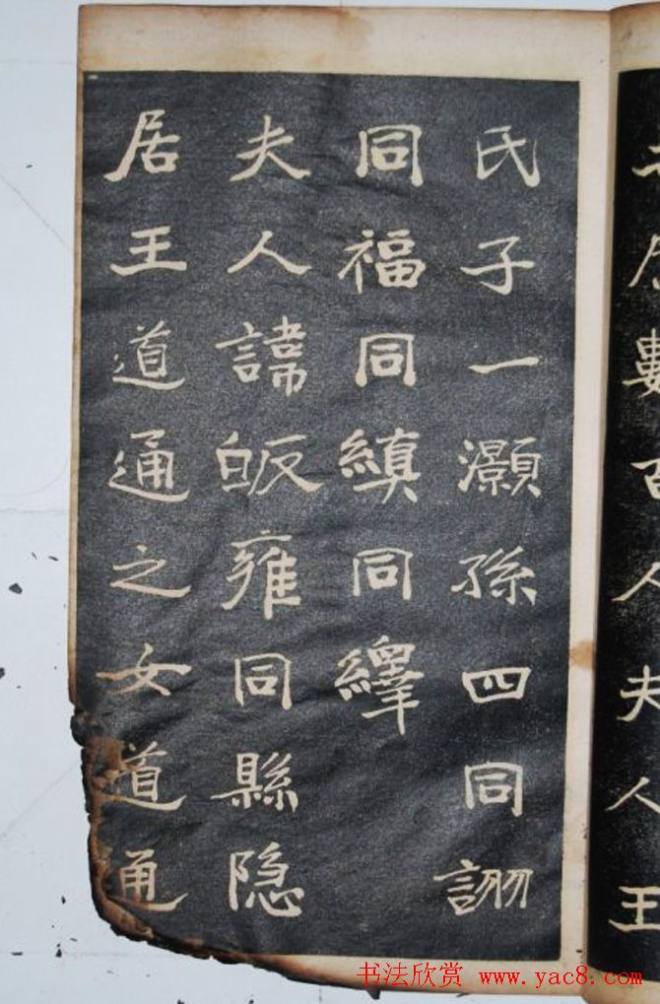 數百人夫人王
氏子一灝孫四同詡
同福同縝同繹
夫人諱皈雍同縣隐
居王道通之女道通
书法欣赏 www.yac8.com